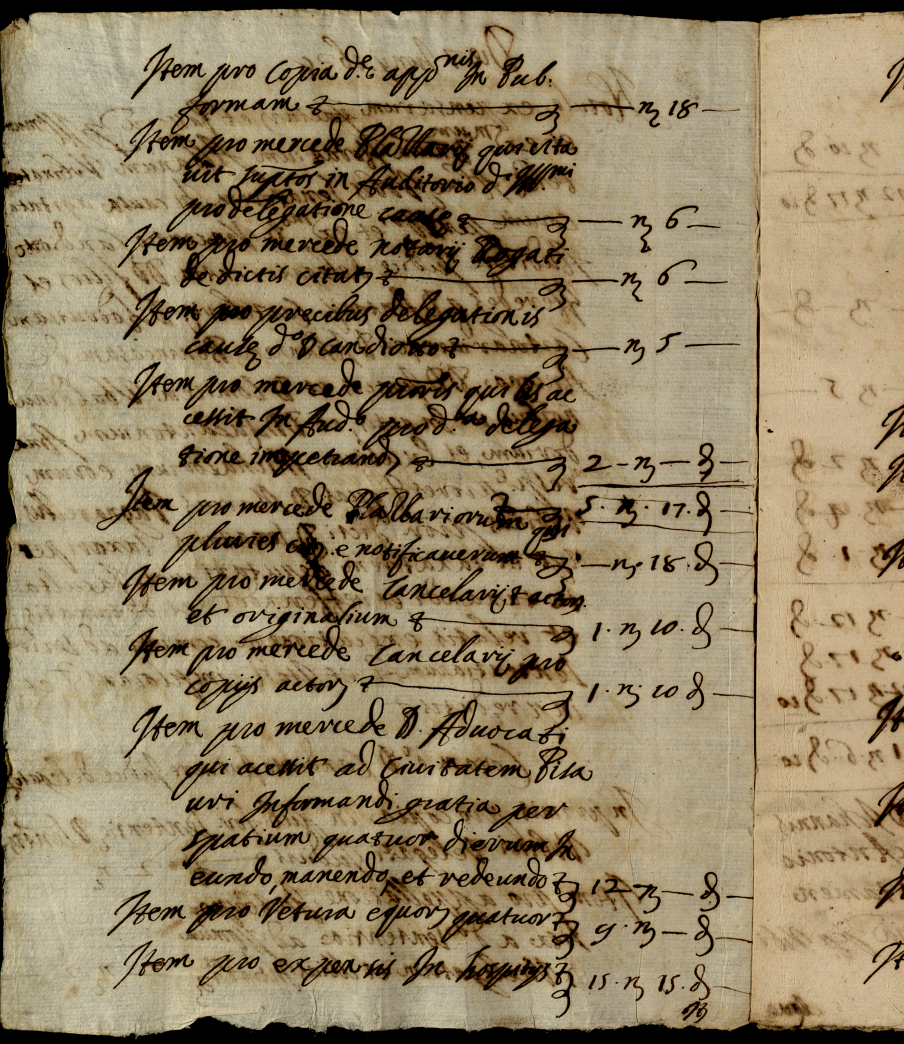 Item pro copia d.e appnis In Pub.
formam — ꝫ 18 —
Item pro mercede Blallarij qui cita
uit supptos in Auditorio d. Ill.mi
pro delegatione cause — ꝫ 6 —
Item pro mercede notarij Rogati
de dictis citat. — ꝫ 6 —
Item pro precibus delegationis
cause d.o — ꝫ 5 —
Item pro mercede qui ac
cessit In Aud.o pro d.a delega
tione impetrand. 2 - ꝫ — ₰ —
Item pro mercede Blallariorum 5 · ꝫ · 17 · ₰ —
qui
pluries notificauerunt — ꝫ · 18 · ₰ —
Item pro mercede Cancelarij actor.
et originalium 1 · ꝫ 10 · ₰ —
Item pro mercede Cancelarij pro
copijs actor. 1 · ꝫ 10 ₰ —
Item pro mercede D. Aduocati
qui acessit ad Ciuitatem Pisa
uri Informandi gratia per
spatium quatuor dierum In
eundo, manendo, et redeundo 12 - ꝫ — ₰
Item pro Vetura equor. quatuor 9 · ꝫ — ₰ —
Item pro expensis In hospitijs 15 · ꝫ 15 · ₰ —